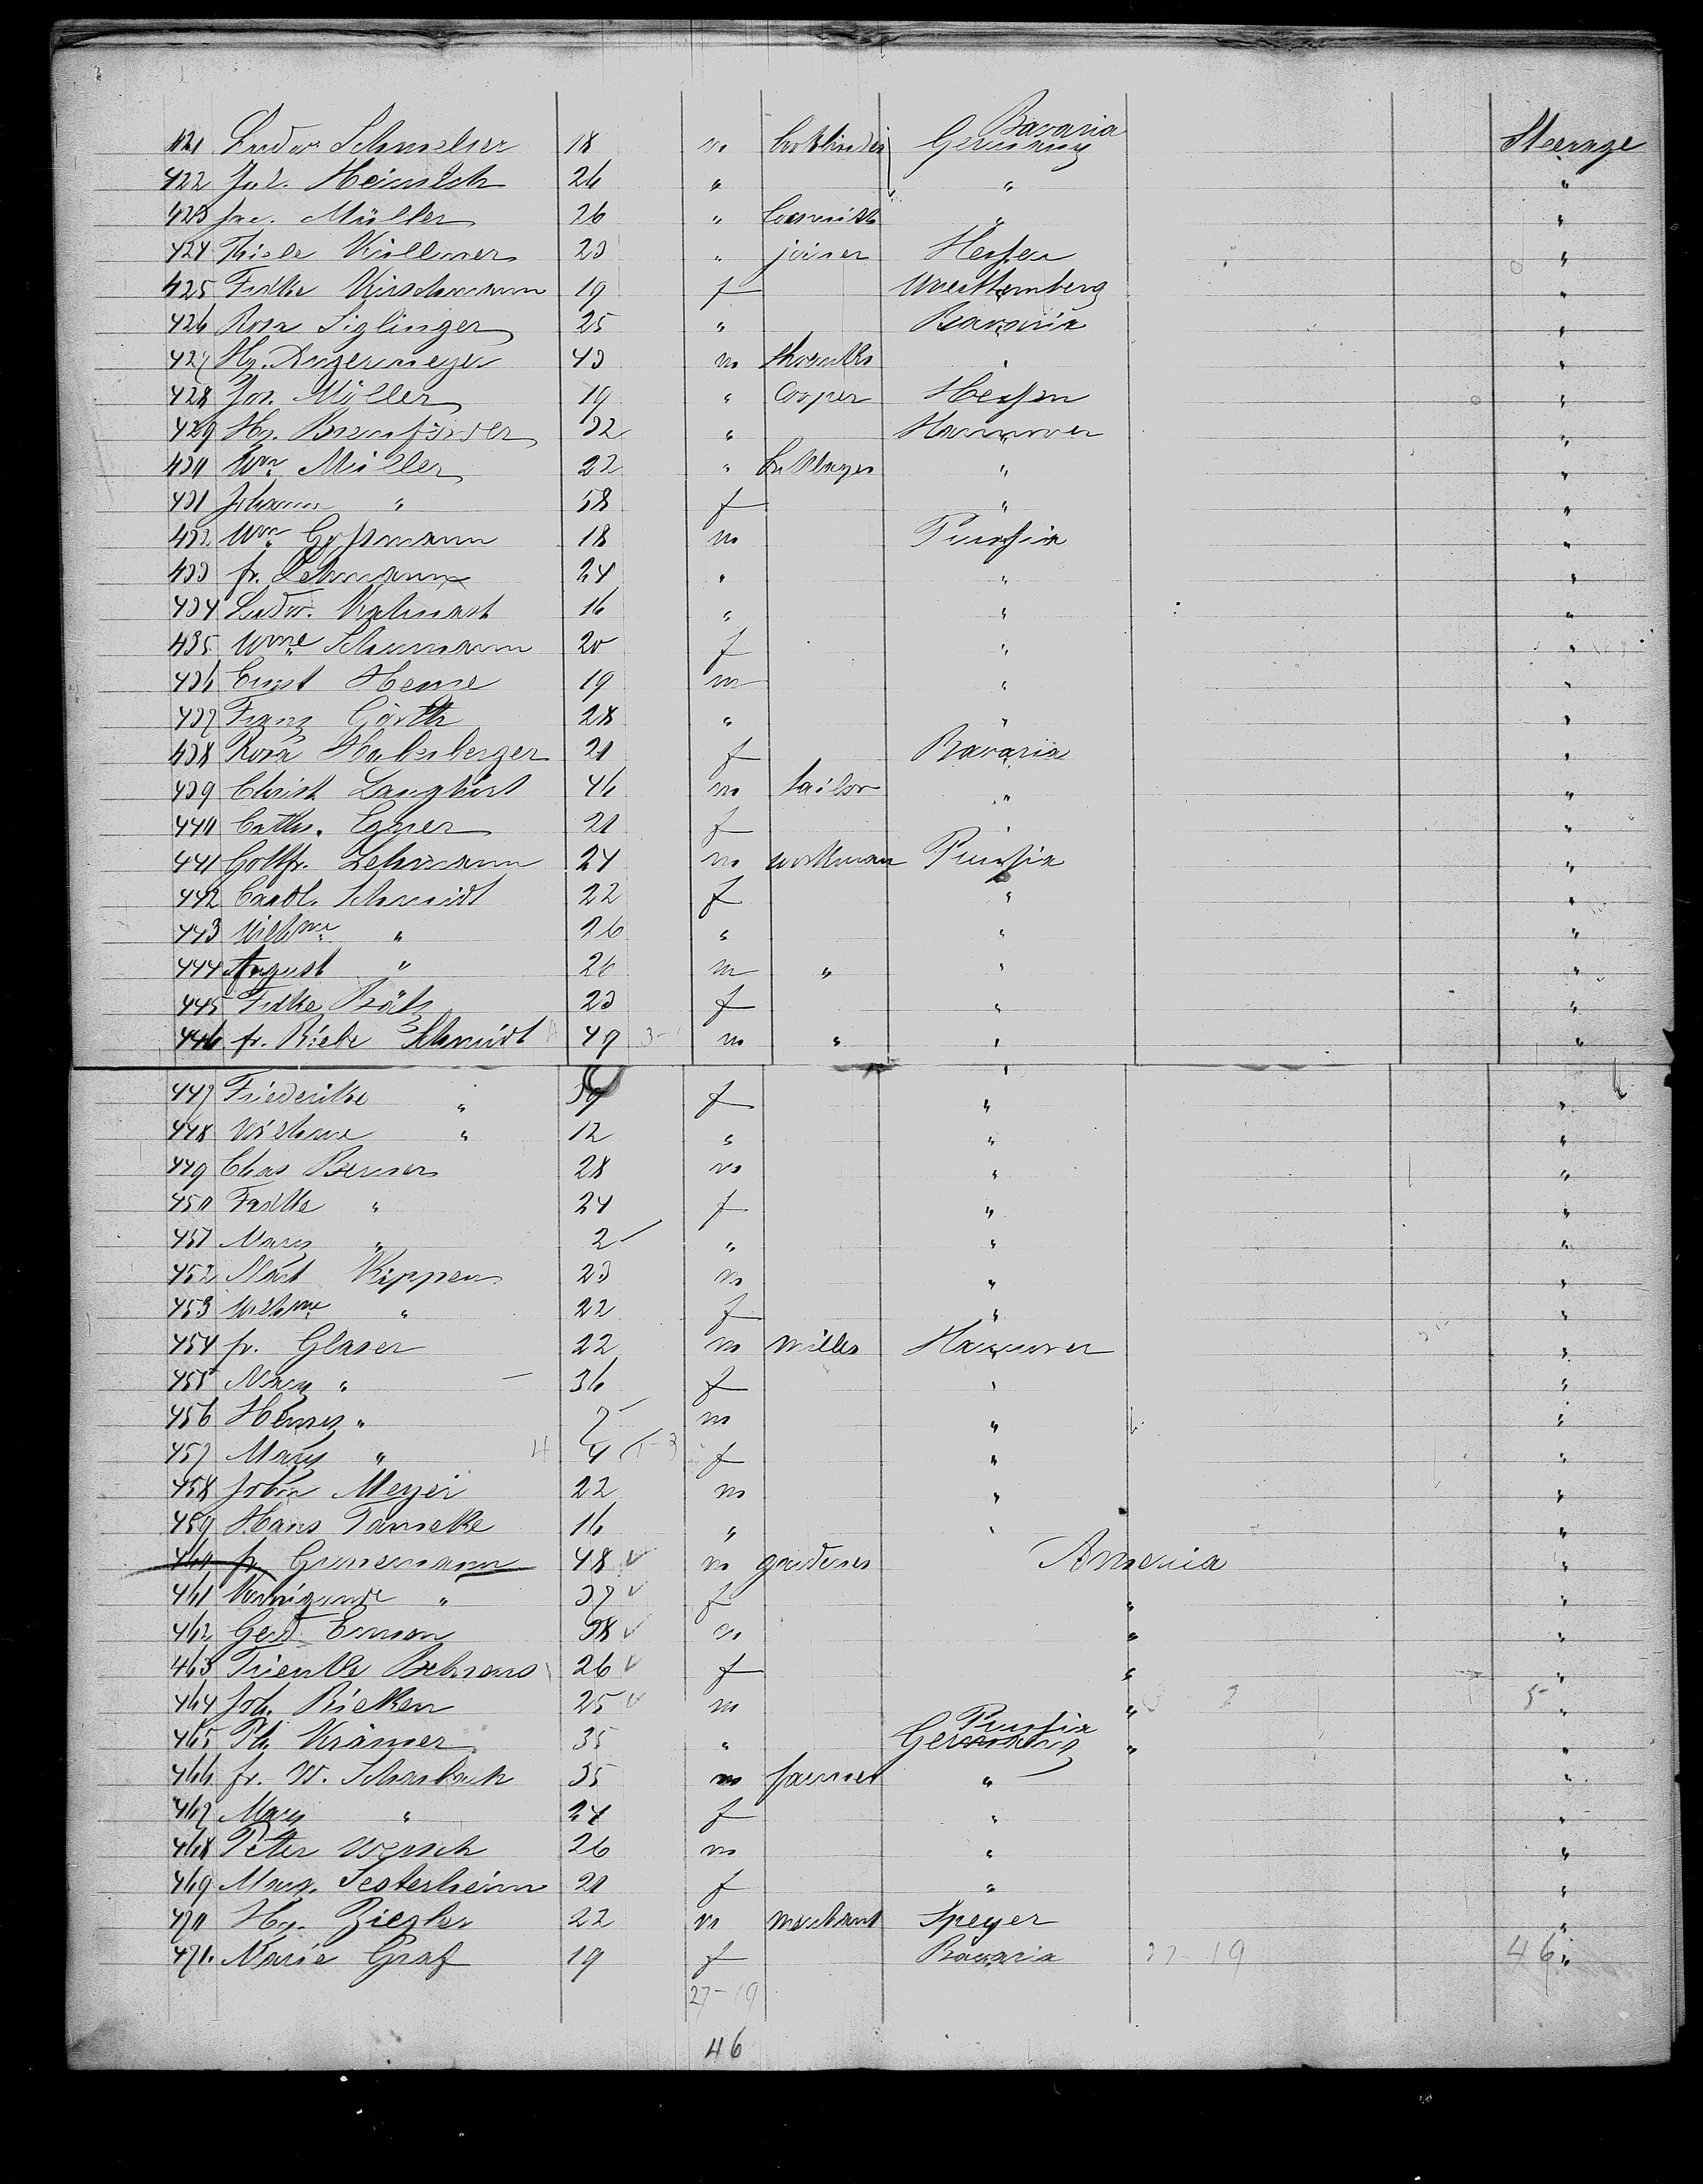 421 Ludw. Schmelser 18 m Bavaria Germany Steerage
422 Jul. Heinrich 26 " " "
423 Jac. Müller 26 " " "
424 Thiele Küllmer 23 " joiner Hessen "
425 Fridke Kirschmann 19 f Wuerttemberg "
426 Rosa Siglinger 25 " Bavaria "
427 Hy. Angermeyer 43 m " "
428 Jos. Möller 19 " Cooper Hessen "
429 Hy. 32 " Hannover "
430 Wm Müller 22 " " "
431 Johanne " 58 f " "
432 Wm Gossmann 18 m Prussia "
433 fr. Lehmann 24 " " "
434 Ludw. 16 " " "
435 Wme Schumann 20 f " "
436 Ernst Henne 19 m " "
437 Franz Gärth 28 " " "
438 Rosa Haberberger 21 f Bavaria "
439 Christ. Langhirt 46 m tailor " "
440 Cath. Egner 21 f " "
441 Gottfr. Lehmann 24 m workman Prussia "
442 Carol. Schmidt 22 f " "
443 Wilhme " 26 " " "
444 August " 26 m " " "
445 Fridke Bätz 23 f " "
446 fr. Riebe Schmidt 49 m " " "
447 Friederike " 39 f " "
448 Wilhme " 12 " " "
449 Chas Berner 28 m " "
450 Fridke " 24 f " "
451 Mary " 2 " " "
452 Mart Kippen 23 m " "
453 Wilhme " 22 f " "
454 fr. Glaser 22 m miller Hannover "
455 Mary " 36 f " "
456 Henry " 7 m " "
457 Mary " 4 f " "
458 John Meyer 22 m " "
459 Hans Tamcke 16 " " "
460 fr. Gunemann 48 m gardener America "
461 Kunigunde " 37 f " "
462 Gerd Emson 38 m " "
463 Trientke Behrens 26 f " "
464 Joh. Rieken 25 m " "
465 Ph. Krämer 35 " Prussia Germany " "
466 fr. W. Scharbach 35 m farmer " "
467 Mary " 24 f " "
468 Peter Wersch 26 m " "
469 Marg. Sesterheim 21 f " "
470 Hy. Ziegler 22 m merchant Speyer "
471. Marie Graf 19 f Bavaria 27-19 46 "
27-19
46